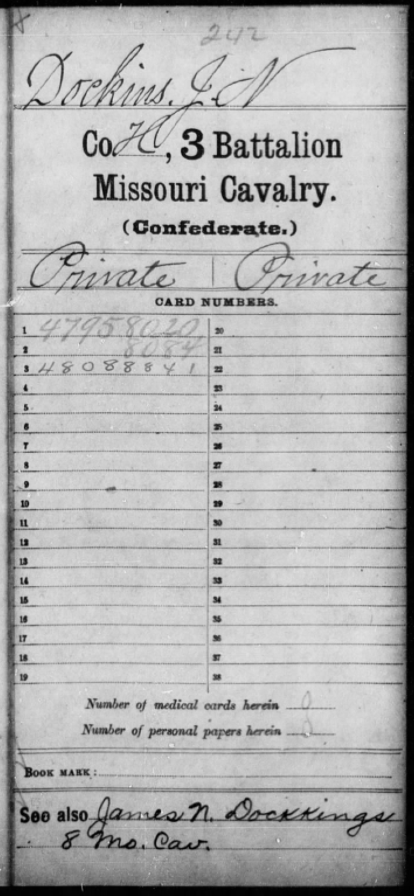 242
Dockins, J. N
Co. H, 3 Battalion
Missouri Cavalry.
(Confederate.)
Private | Private
CARD NUMBERS.
1 47958020 20
2 8084 21
3 48088841 22
4 23
5 24
6 25
7 26
8 27
9 28
10 29
11 30
12 31
13 32
14 33
15 34
16 35
17 36
18 37
19 38
Number of medical cards herein 0
Number of personal papers herein 0
BOOK MARK:
See also James N. Dockkings
8 Mo. Cav.